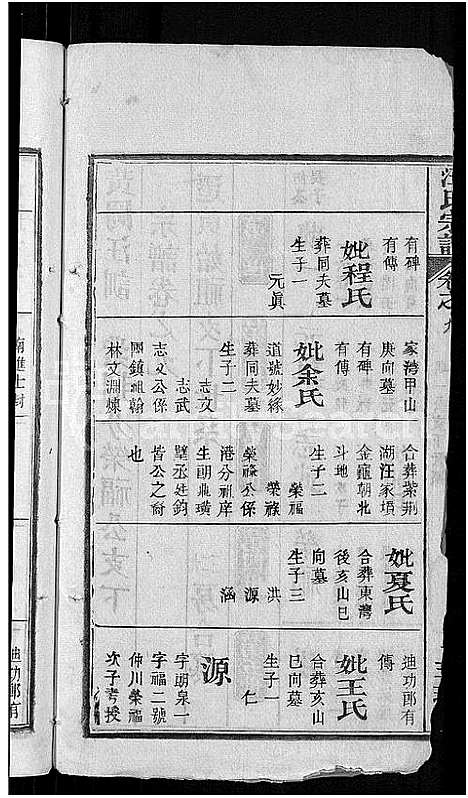 汪氏宗譜
卷之九
有碑
有傳
妣程氏
葬同夫墓
生子一
元眞
家灣甲山
庚向墓
有碑
有傳
妣余氏
道號妙緣
葬同夫墓
生子二
志文
志武
志文公係
國鎮祖翰
林文淵煉
合葬紫荆
湖汪家塤
金龜朝北
斗地
生子二
榮福
榮祿
榮祿公係
港分祖庠
生朗
皆公之裔
也
妣夏氏
合葬東灣
後亥山巳
向墓
生子三
洪
源
涵
迪功郎有
傳
妣王氏
合葬亥山
巳向墓
生子一
仁
源
字朋泉一
字福二號
仲川榮福
次子考授
迪功郎有